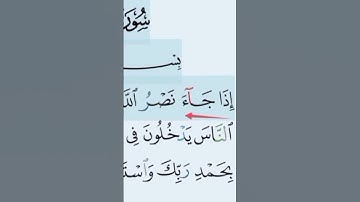 سُورَ
بِسْـ
إِذَا جَآءَ نَصْرُ اللَّـ
ٱلنَّاسَ يَدْخُلُونَ فِى
بِحَمْدِ رَبِّكَ وَٱسْتَـ